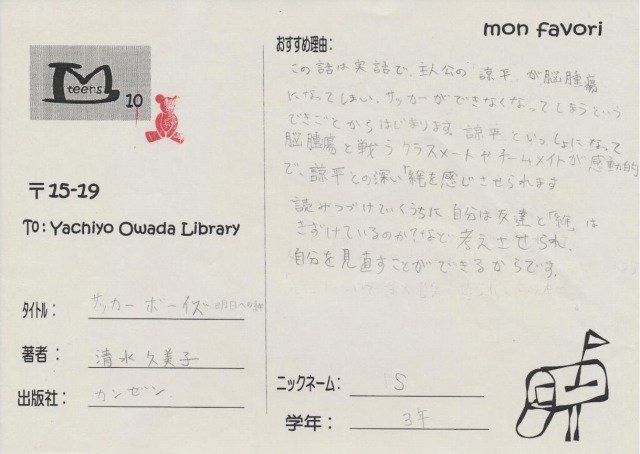 mon favori
M
teens
10
〒15-19
To: Yachiyo Owada Library
タイトル: サッカーボーイズ 明日への絆
著者: 清水久美子
出版社: カンゼン
おすすめ理由:
この話は実話で、主人公の「諒平」が脳腫瘍
になってしまい、サッカーができなくなってしまうという
できごとからはじまります。諒平といっしょになって
脳腫瘍と戦うクラスメートやチームメイトが感動的
で、諒平との深い「絆」を感じさせられます
読みつづけていくうちに自分は友達と「絆」は
きずけているのか?など考えさせられ、
自分を見直すことができるからです。
ニックネーム: IS
学年: 3年